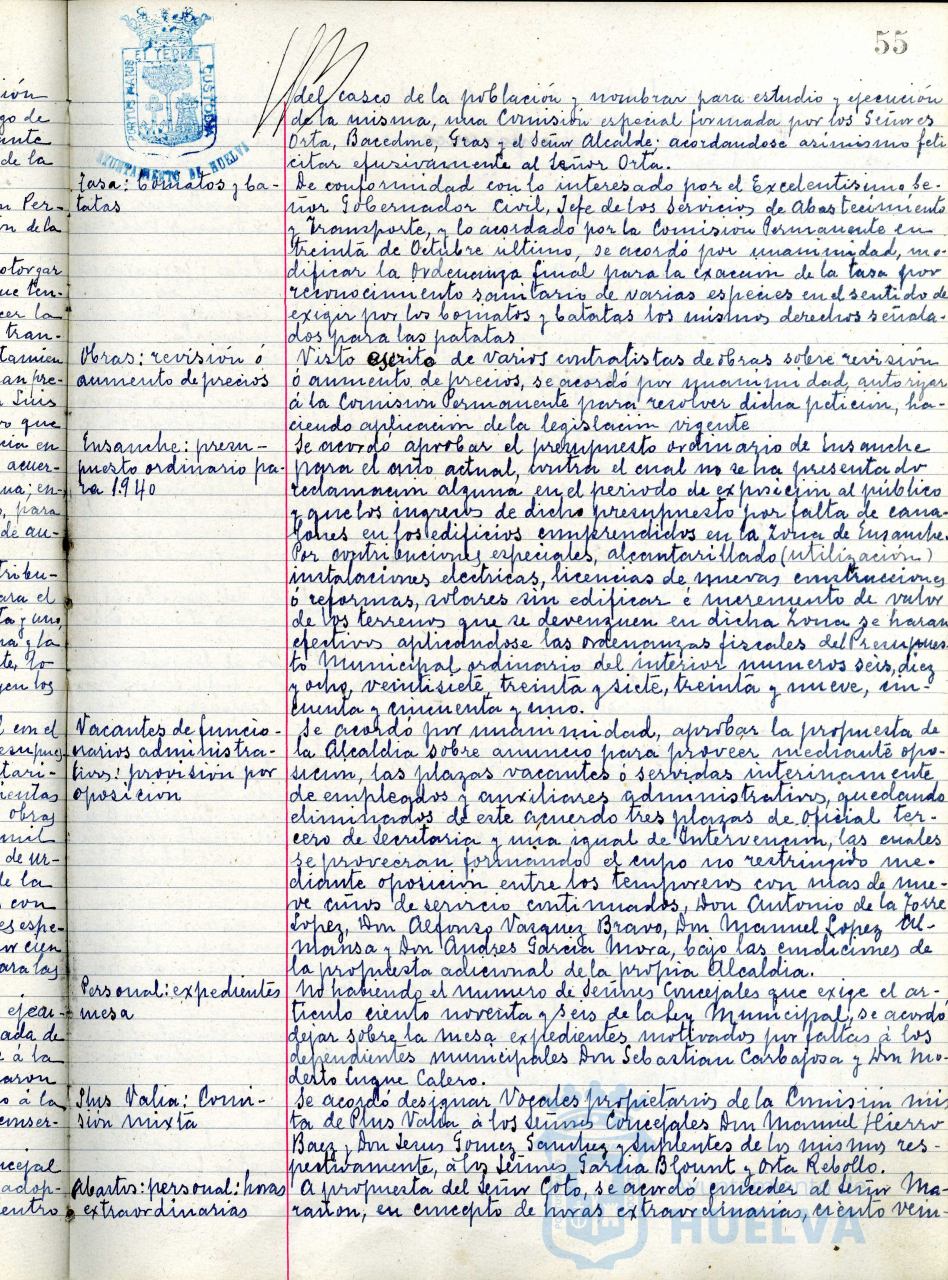 55
PORTUS MARIS ET TERRE CUSTODIA
AYUNTAMIENTO DE HUELVA
del casco de la población y nombrar para estudio y ejecución
de la misma, una Comisión especial formada por los Señores
Orta, Bacedme, Gras y el Señor Alcalde; acordandose asimismo feli
citar efusivamente al Señor Orta.
Tasa: boniatos y ba-
tatas
De conformidad con lo interesado por el Excelentisimo Se-
ñor Gobernador Civil, Jefe de los Servicios de Abastecimiento
y Transporte, y lo acordado por la Comision Permanente en
treinta de Octubre último, se acordó por unanimidad, mo-
dificar la Ordenanza final para la exacion de la tasa por
reconocimiento sanitario de varias especies en el sentido de
exigir por los boniatos y batatas los mismos derechos señala-
dos para las patatas
Obras: revisión ó
aumento de precios
Visto escrito de varios contratistas de obras sobre revisión
ó aumento de precios, se acordó por unanimidad, autorizar
á la Comision Permanente para resolver dicha peticion, ha-
ciendo aplicacion de la legislacion vigente
Ensanche: presu-
puesto ordinario pa-
ra 1.940
Se acordó aprobar el presupuesto ordinario de Ensanche
para el año actual, contra el cual no se ha presentado
reclamacion alguna en el periodo de exposicion al público
y que los ingresos de dicho presupuesto por falta de cana-
lones en los edificios comprendidos en la Zona de Ensanche.
Por contribuciones especiales, alcantarillado (utilización)
instalaciones electricas, licencias de nuevas construcciones
ó reformas, solares sin edificar é incremento de valor
de los terrenos que se devenguen en dicha Zona se haran
efectivos aplicandose las ordenanzas fiscales del Presupues
to Municipal ordinario del interior numeros seis, diez
y ocho, veintisiete, treinta y siete, treinta y nueve, cin-
cuenta y cincuenta y uno.
Vacantes de funcio-
narios administra-
tivos: provisión por
oposicion
Se acordó por unanimidad, aprobar la propuesta de
la Alcaldia sobre anuncio para proveer mediante opo-
sicion, las plazas vacantes ó servidas interinamente,
de empleados y auxiliares administrativos, quedando
eliminados de este acuerdo tres plazas de Oficial ter-
cero de Secretaria y una igual de Intervencion, las cuales
se proveeran formando el cupo no restringido me-
diante oposicion entre los temporeros con mas de nue-
ve años de servicio continuados, Don Antonio de la Torre
Lopez, Don Alfonso Vazquez Bravo, Don Manuel Lopez Al-
mansa y Don Andres Garcia Mora, bajo las condiciones de
la propuesta adicional de la propia Alcaldia.
Personal: expedientes
mesa
No habiendo el numero de Señores Concejales que exige el ar-
ticulo ciento noventa y seis de la Ley Municipal, se acordo
dejar sobre la mesa expedientes motivados por faltas á los
dependientes municipales Don Sebastian Carbajosa y Don Mo-
desto Luque Calero.
Plus Valia: Comi-
sión mixta
Se acordó designar Vocales propietarios de la Comision mix
ta de Plus Valia á los Señores Concejales Don Manuel Hierro
Baez y Don Jesus Gomez Sanchez y suplentes de los mismos res-
pectivamente, á los Señores Garcia Blount y Orta Rebollo.
Abastos: personal: horas
extraordinarias
A propuesta del Señor Coto, se acordó conceder al Señor Ma-
rañon, en concepto de horas extraordinarias, ciento vein-
Ayuntamiento de
HUELVA